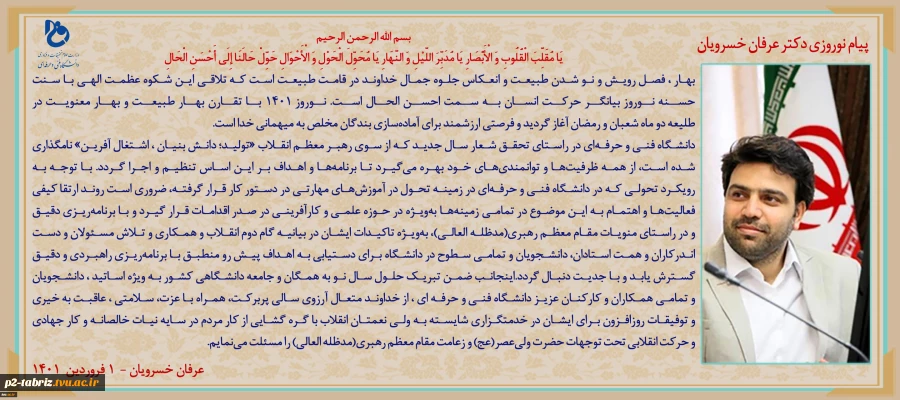 پیام نوروزی دکتر عرفان خسرویان
بسم الله الرحمن الرحیم
یَا مُقَلِّبَ الْقُلُوبِ وَ الْأَبْصَارِ یَا مُدَبِّرَ اللَّیْلِ وَ النَّهَارِ یَا مُحَوِّلَ الْحَوْلِ وَ الْأَحْوَالِ حَوِّلْ حَالَنَا إِلَى أَحْسَنِ الْحَالِ
بهار، فصل رویش و نو شدن طبیعت و انعکاس جلوه جمال خداوند در قامت طبیعت است که تلاقی این شکوه عظمت الهی با سنت
حسنه نوروز بیانگر حرکت انسان به سمت احسن الحال است. نوروز ۱۴۰۱ با تقارن بهار طبیعت و بهار معنویت در
طلیعه دو ماه شعبان و رمضان آغاز گردید و فرصتی ارزشمند برای آماده‌سازی بندگان مخلص به میهمانی خدا است.
دانشگاه فنی و حرفه‌ای در راستای تحقق شعار سال جدید که از سوی رهبر معظم انقلاب «تولید؛ دانش بنیان ، اشتغال آفرین» نامگذاری
شده است، از همه ظرفیت‌ها و توانمندی‌های خود بهره می‌گیرد تا برنامه‌ها و اهداف بر این اساس تنظیم و اجرا گردد. با توجه به
رویکرد تحولی که در دانشگاه فنی و حرفه‌ای در زمینه تحول در آموزش‌های مهارتی در دستور کار قرار گرفته، ضروری است روند ارتقا کیفی
فعالیت‌ها و اهتمام به این موضوع در تمامی زمینه‌ها به‌ویژه در حوزه علمی و کارآفرینی در صدر اقدامات قرار گیرد و با برنامه‌ریزی دقیق
و در راستای منویات مقام معظم رهبری(مدظله العالی)، به‌ویژه تاکیدات ایشان در بیانیه گام دوم انقلاب و همکاری و تلاش مسئولان و دست
اندرکاران و همت استادان، دانشجویان و تمامی سطوح در دانشگاه برای دستیابی به اهداف پیش رو منطبق با برنامه‌ریزی راهبردی و دقیق
گسترش یابد و با جدیت دنبال گردد.اینجانب ضمن تبریک حلول سال نو به همگان و جامعه دانشگاهی کشور به ویژه اساتید ، دانشجویان
و تمامی همکاران و کارکنان عزیز دانشگاه فنی و حرفه ای ، از خداوند متعال آرزوی سالی پربرکت، همراه با عزت، سلامتی ، عاقبت به خیری
و توفیقات روزافزون برای ایشان در خدمتگزاری شایسته به ولی نعمتان انقلاب با گره گشایی از کار مردم در سایه نیات خالصانه و کار جهادی
و حرکت انقلابی تحت توجهات حضرت ولی‌عصر(عج) و زعامت مقام معظم رهبری(مدظله العالی) را مسئلت می‌نمایم.
عرفان خسرویان - ۱ فروردین ۱۴۰۱
p2-tabriz.tvu.ac.ir